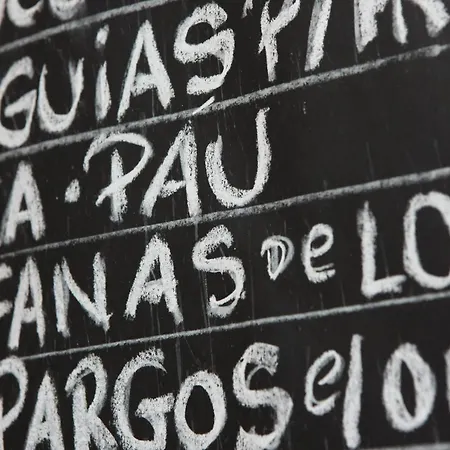 GUIAS P/AR
A · PÁU
FANAS de LO
PARGOS e lO